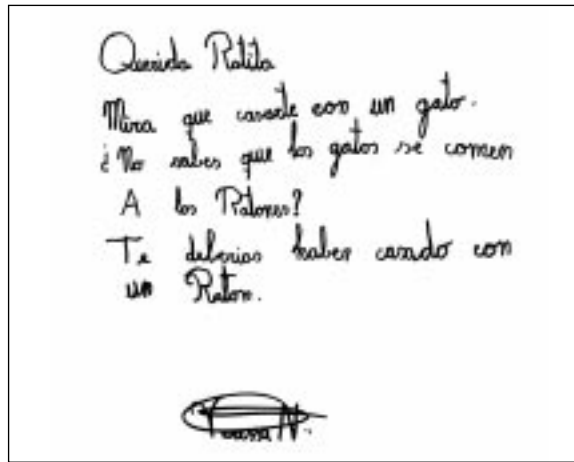 Querida Ratita
Mira que casarte con un gato.
¿No sabes que los gatos se comen
A los Ratones?
Te deberias haber casado con
un Raton.
N.